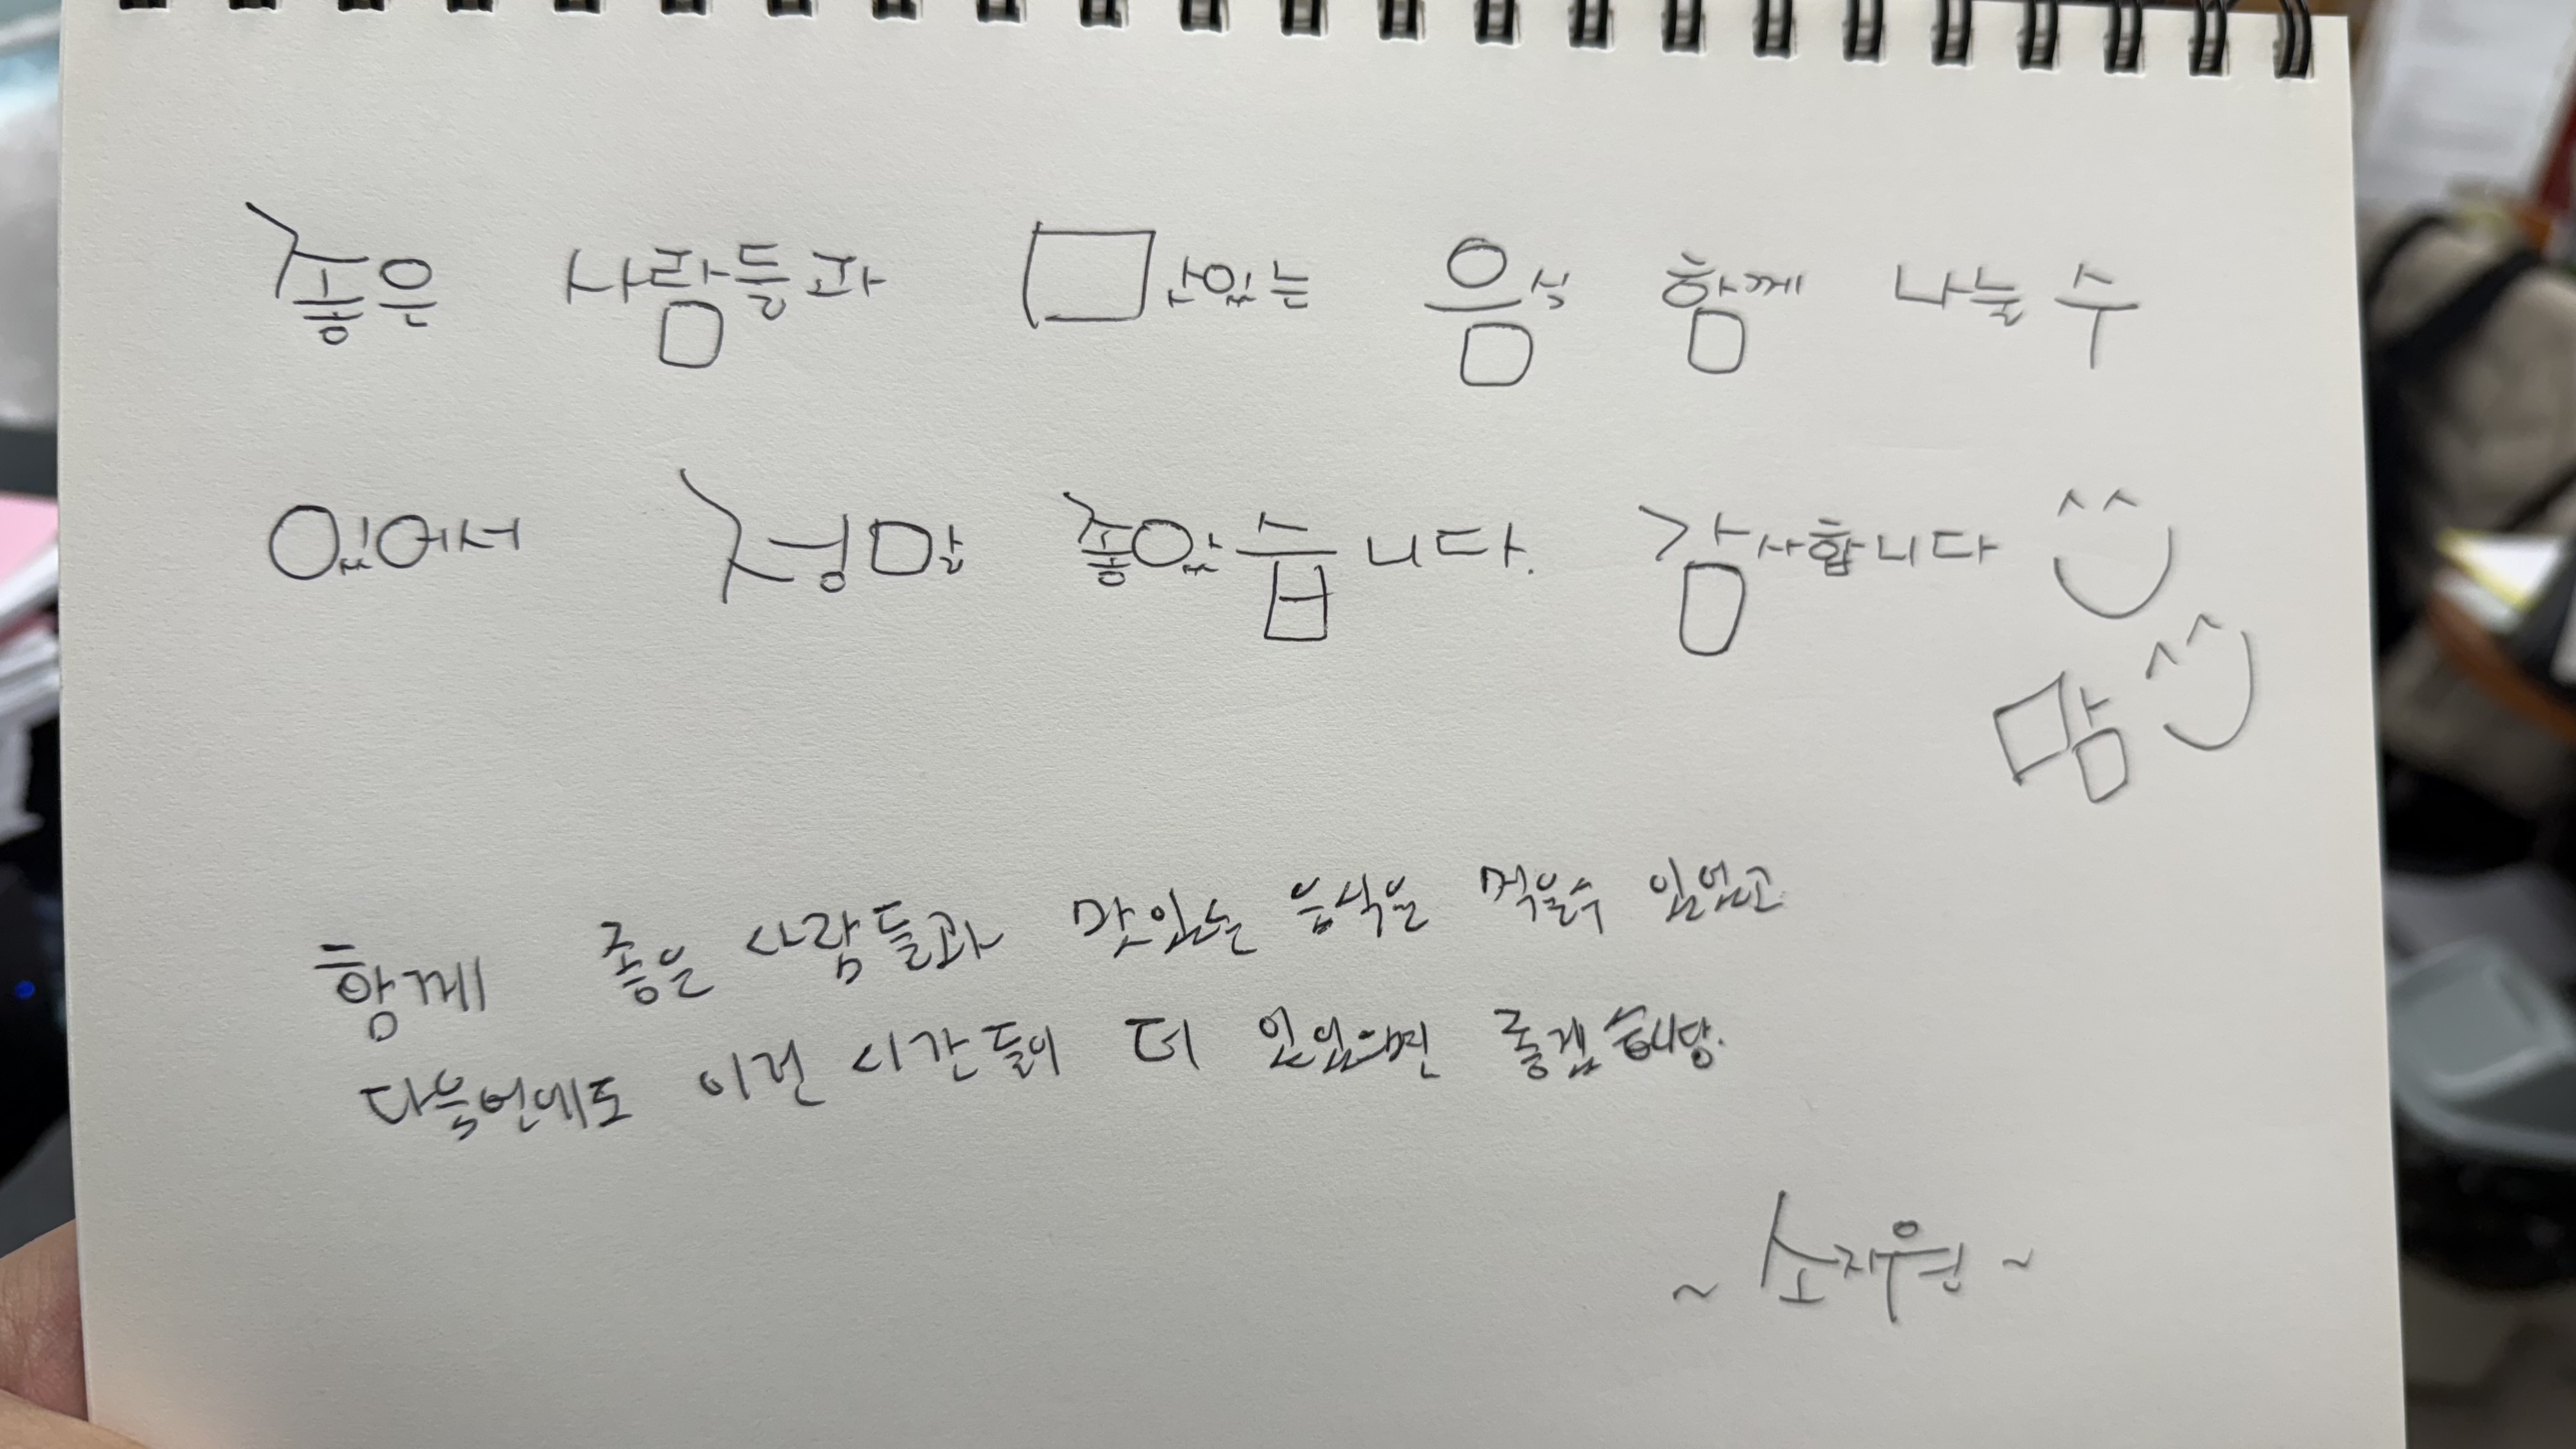 좋은 사람들과 맛있는 음식 함께 나눌 수
있어서 정말 좋았습니다. 감사합니다 ^^
맘 ^^
함께 좋은 사람들과 맛있는 음식을 먹을수 있었고
다음번에도 이런 시간들이 더 있었으면 좋겠습니당.
~ 소지원 ~